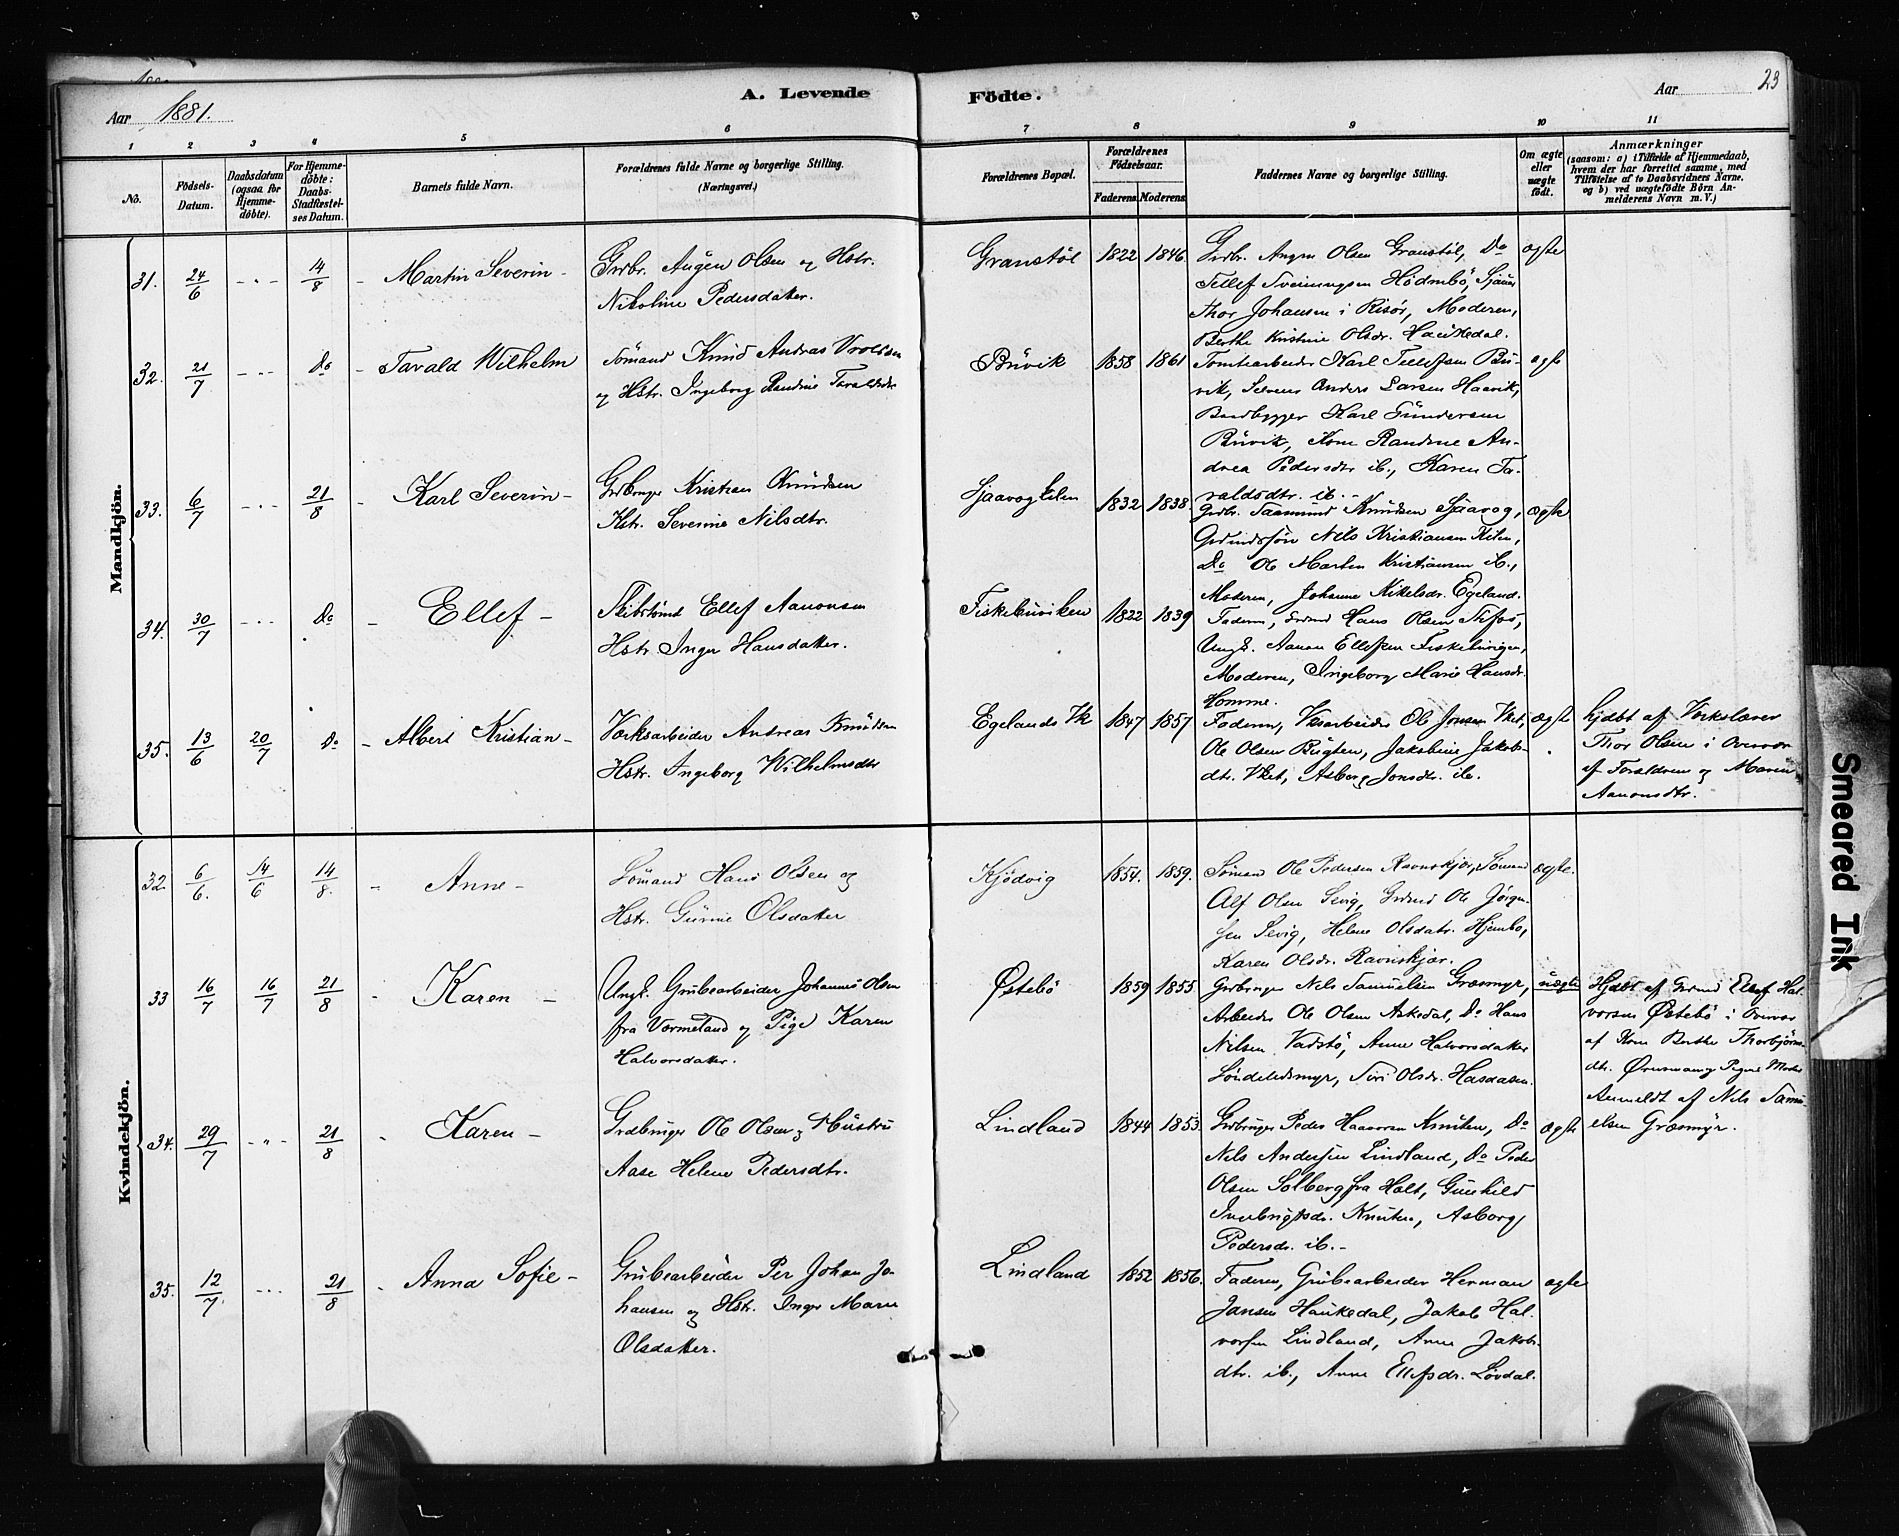 Aar 1881.
A. Levende Födte.
Aar
23
1 2 3 4 5 6 7 8 9 10 11
No.
Födsels-Datum.
Daabsdatum (ogsaa for Hjemme-döbte).
For Hjemme-döbte: Daabs-Stadfæstelses Datum.
Barnets fulde Navn.
Forældrenes fulde Navne og borgerlige Stilling. (Næringsvei.)
Forældrenes Bopæl.
Forældrenes Födselsaar.
Faderens Moderens
Faddernes Navne og borgerlige Stilling.
Om ægte eller uægte födt.
Anmærkninger
(saasom: a) i Tilfælde af Hjemmedaab, hvem der har forrettet samme, med Tilföielse af to Daabsvidners Navne, og b) ved uægtefödte Börn Anmelderens Navn m. V.)
Mandkjön.
31. 24/6 - " - 14/8 - Martin Severin -
Grdbr. Augen Olsen og Hstr.
Nikoline Pedersdatter.
Granstøl 1822 1846
Grdbr. Augen Olsen Granstøl, Do
Tellef Sveinungsen Hödnebö,
Thor Johansen i Risør, Moderen,
Berthe Kristine Olsdr. Haukedal.
ægte
32. 21/7 - " - Do - Tarald Wilhelm
Sømand Knud Andreas
og Hstr. Ingeborg Randine
Buvik 1858 1861
Tomtearbeider Karl Tellefsen Bu-
vik, Anders Larsen Haavik,
Baadbygger Karl Gundersen
Buvik, Kone Randine An-
drea Pedersdtr ib., Karen Ta-
raldsdtr. ib. -
ægte
33. 6/7 - " - 21/8 - Karl Severin -
Grdbruger Kristian Knudsen
Hstr. Severine Nilsdtr.
1832 1838
Grdbr. Knudsen Sjaavog,
Nils Kristiansen Kilen,
Do Ole Marten Kristiansen ib.,
Moderen, Johanne Mikelsdr. Egeland.
ægte
34. 30/7 - " - Do - Ellef -
Ellef Aanonsen
Hstr. Inger Hansdatter.
Fiskebuviken 1822 1839
Faderen, Hans Olsen
Ungk. Aanon Ellefsen
Moderen, Ingeborg Marie Hansdr.
Homme.
35. 13/6 20/7 Do - Albert Kristian -
Værksarbeider Andreas Knudsen
Hstr. Ingeborg Wilhelmsdtr
Egelands Vk 1847 1857
Faderen, Ole Jonsen Vket,
Ole Olsen Bugten, Jakobine Jakobs-
dtr. Vket, Asborg Jonsdtr. ib.
ægte
hjdbt af
Thor Olsen i Overvær
af Forældrene og Maren
Aanonsdtr.
Kvindekjön.
32 6/6. 14/6 14/8. - Anne -
Sømand Hans Olsen og
Hstr. Olsdatter
Kjødvig 1854. 1859.
Sömand Ole Pedersen Ravnskjær, Sömand
Alf Olsen Sevig, Ole Jörgen-
sen Sevig, Helene Olsdatr. Hjembo,
Karen Olsdr. Ravnskjær.
ægte.
33 16/7 16/7 21/8 - Karen -
Ungk. Grubearbeider Johannes Olsen
fra Vermeland og Pige Karen
Halvorsdatter.
Østebö 1859 1855
Grdbruger Nils Samuelsen Græsmyr,
Arbeider Ole Olsen Askedal, Do Hans
Nilsen Vadstö, Anne Halvorsdatter
Söndeledsmyr, Siri Olsdr. Hasdasen.
uægte
Hjdbt af Ellef Hal-
vorsen Østebö i Overvær
af Kone Berthe Thorbjörns-
dtr.
Anmeldt af Nils Samu-
elsen Græsmyr.
34. 29/7 - " - 21/8 - Karen -
Grdbruger Ole Olsen og Hustru
Aase Helene Pedersdtr.
Lindland 1844 1853.
Grdbruger Peder Knuten, Do
Nils Andersen Lindland, Do Peder
Olsen Solberg fra Holt, Gunhild
Knuten, Asborg
Pedersdr. ib. -
ægte
35. 12/7. - " - 21/8 - Anna Sofie -
Grubearbeider Per Johan Jo-
hansen og Hstr. Inger Marie
Olsdatter.
Lindland 1852 1856.
Faderen, Grubearbeider Herman
Jansen Haukedal, Jakob Hal-
vorsen Lindland, Anne Jakobs-
dtr. ib., Anne Ellefsdr. Lövdal.
ægte
Smeared Ink